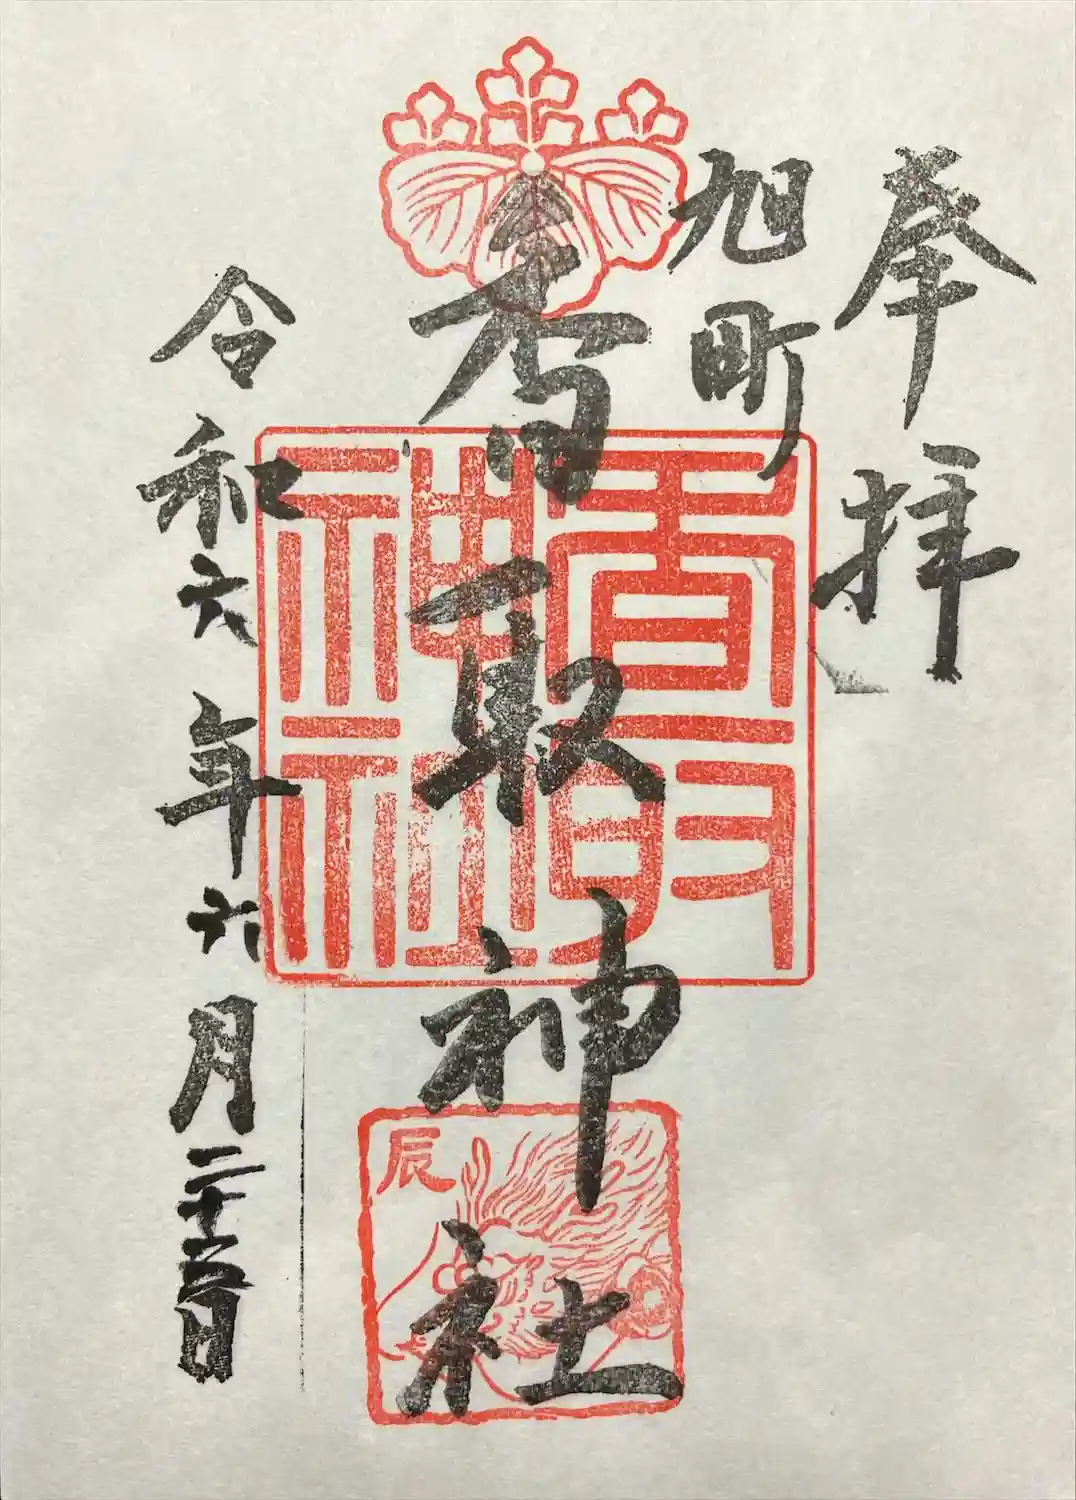 奉拝
旭町
香取神社
令和六年六月二十五日
香取
神社
辰